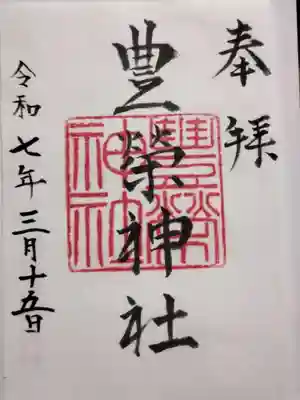 奉拝
豊榮神社
令和七年三月十五日
豊榮神社